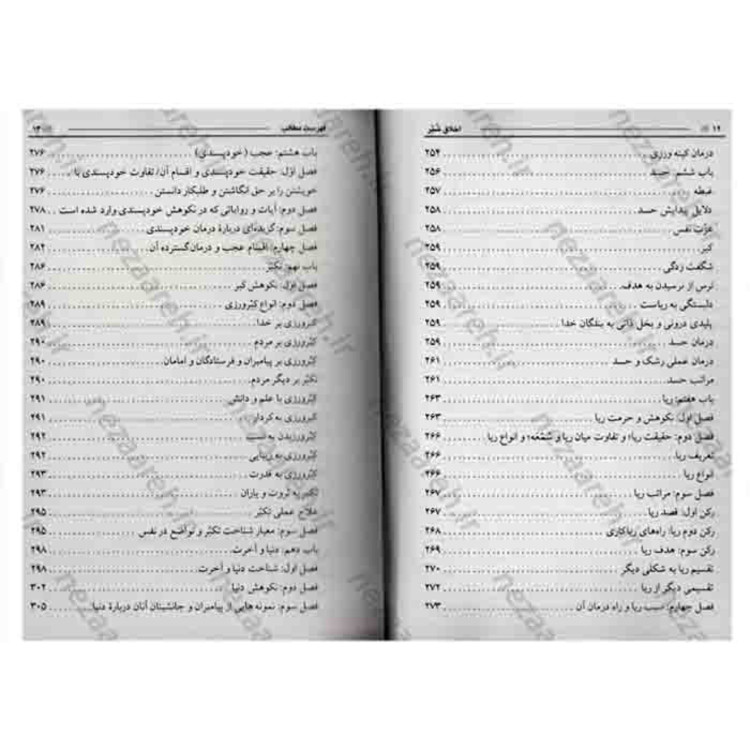 ۱۲ اخلاق شبّر
درمان کینه ورزی ۲۵۴
باب ششم: حسد ۲۵۶
غبطه ۲۵۷
دلایل پیدایش حسد ۲۵۸
عزّت نفس ۲۵۸
کبر ۲۵۹
شگفت زدگی ۲۵۹
ترس از نرسیدن به هدف ۲۵۹
دلبستگی به ریاست ۲۵۹
پلیدی درونی و بخل ذاتی به بندگان خدا ۲۵۹
درمان حسد ۲۵۹
درمان عملی رشک و حسد ۲۶۱
مراتب حسد ۲۶۱
باب هفتم: ریا ۲۶۳
فصل اول: نکوهش و حرمت ریا ۲۶۳
فصل دوم: حقیقت ریا؛ و تفاوت میان ریا و سُمْعَه؛ و انواع ریا ۲۶۶
تعریف ریا ۲۶۶
انواع ریا ۲۶۶
فصل سوم: مراتب ریا ۲۶۷
رکن اول: قصد ریا ۲۶۷
رکن دوم ریا: راه‌های ریاکاری ۲۶۸
رکن سوم: هدف ریا ۲۶۹
تقسیم ریا به شکلی دیگر ۲۷۰
تقسیمی دیگر از ریا ۲۷۲
فصل چهارم: سبب ریا و راه درمان آن ۲۷۳
فهرست مطالب ۱۳
باب هشتم: عجب (خودپسندی) ۲۷۶
فصل اوّل: حقیقت خودپسندی و اقسام آن/ تفاوت خودپسندی با ۲۷۶
خویشتن را بر حق انگاشتن و طلبکار دانستن ۲۷۶
فصل دوم: آیات و روایاتی که در نکوهش خودپسندی وارد شده است ۲۷۸
فصل سوم: گزیده‌ای دربارهٔ درمان خودپسندی ۲۸۱
فصل چهارم: اقسام عجب و درمان گسترده آن ۲۸۲
باب نهم: تکبّر ۲۸۶
فصل اول: نکوهش کبر ۲۸۶
فصل دوم: انواع کبْرورزی ۲۸۹
کبرورزی بر خدا ۲۸۹
کبْرورزی بر مردم ۲۹۰
کبْرورزی بر پیامبران و فرستادگان و امامان ۲۹۰
تکبّر بر دیگر مردم ۲۹۰
کبْرورزی با علم و دانش ۲۹۱
کبرورزی به کردار ۲۹۱
کبْرورزیدن به نسب ۲۹۲
کبْرورزی به زیبایی ۲۹۲
کبْرورزی به قدرت ۲۹۳
تکبر به ثروت و یاران ۲۹۳
علاج عملی تکبّر ۲۹۵
فصل سوم: معیار شناخت تکبّر و تواضع در نفس ۲۹۵
باب دهم: دنیا و آخرت ۲۹۸
فصل اول: شناخت دنیا و آخرت ۲۹۸
فصل دوم: نکوهش دنیا ۳۰۲
فصل سوم: نمونه هایی از پیامبران و جانشینان آنان دربارهٔ دنیا ۳۰۵
nezaareh.ir